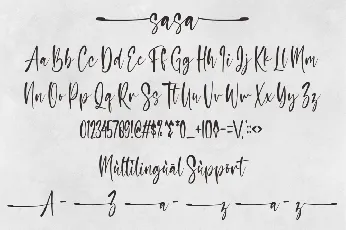 sasa
Aa Bb Cc Dd Ee Ff Gg Hh Ii Jj Kk Ll Mm
Nn Oo Pp Qq Rr Ss Tt Uu Vv Ww Xx Yy Zz
0123456789!@#$%^&*()_+{}[]-=\/,.;:<>
Múltílíngúál Súppórt
A - Z a - z a - z